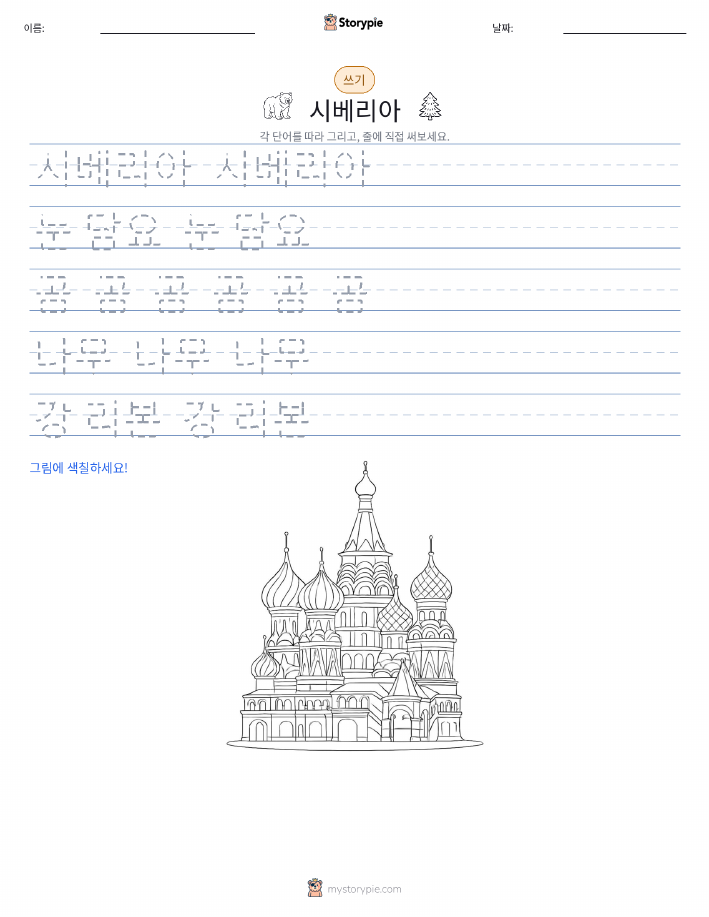 이름: Storypie 날짜:
쓰기
시베리아
각 단어를 따라 그리고, 줄에 직접 써보세요.
시베리아 시베리아
눈 담요 눈 담요
곰 곰 곰 곰 곰 곰
나무 나무 나무
강 리본 강 리본
그림에 색칠하세요!
mystorypie.com